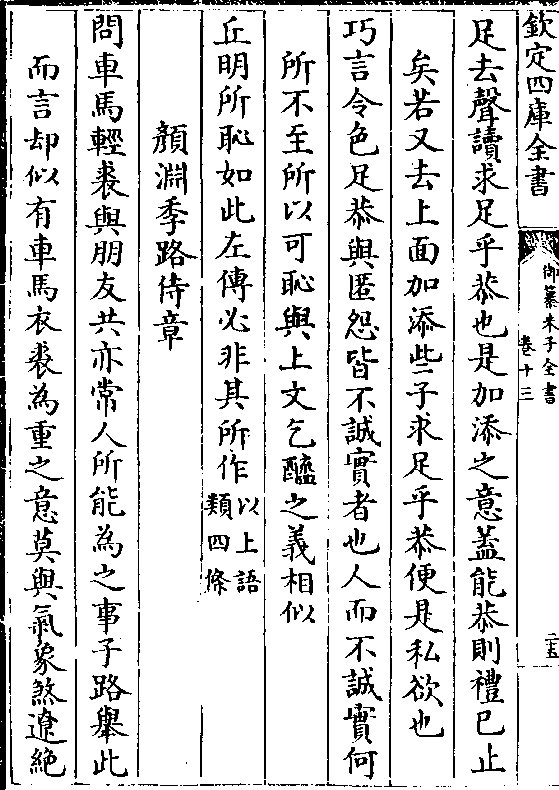 欽定四庫全書
御纂朱子全書
卷十三
二五
足去聲讀求足乎恭也是加添之意蓋能恭則禮已止
矣若又去上面加添些子求足乎恭便是私欲也
巧言令色足恭與匿怨皆不誠實者也人而不誠實何
所不至所以可恥與上文乞醯之義相似
丘明所恥如此左傳必非其所作以上語
類四條
顏淵季路侍章
問車馬輕裘與朋友共亦常人所能為之事子路舉此
而言却似有車馬衣裘為重之意莫與氣象煞遼絶